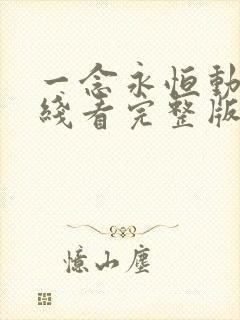 一念永恒動
綫看完整版
憶山塵